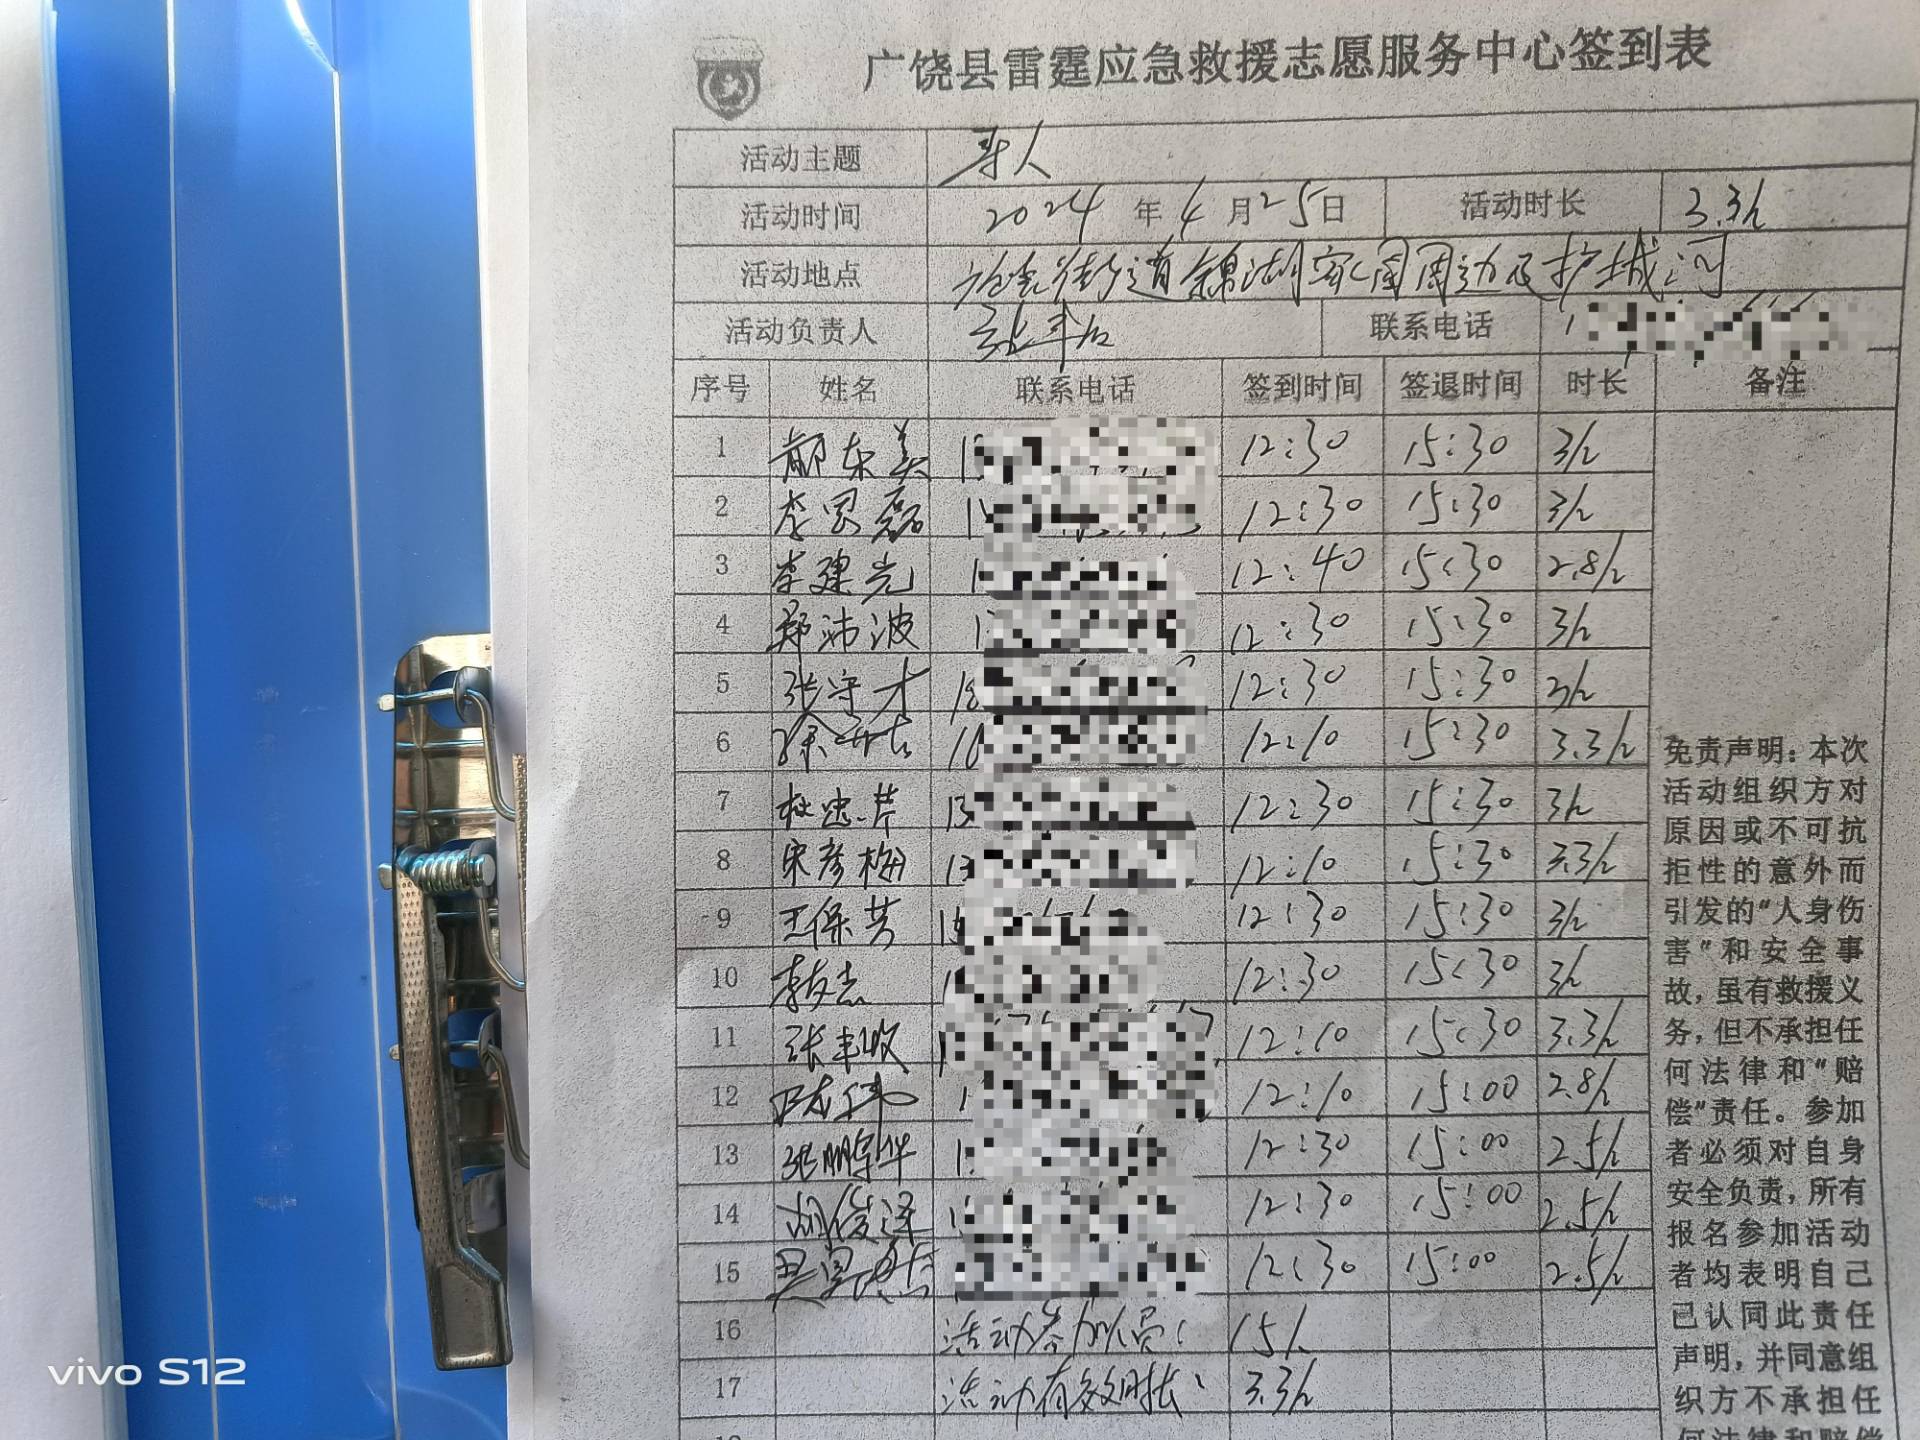 广饶县雷霆应急救援志愿服务中心签到表
活动主题 寻人
活动时间 2024 年 4 月 25 日 活动时长 3.3h
活动地点 街道锦湖家园周边及护城河
活动负责人 联系电话 1
序号 姓名 联系电话 签到时间 签退时间 时长 备注
1 东美 12:30 15:30 3h
2 李 磊 12:30 15:30 3h
3 李建光 12:40 15:30 2.8h
4 郑沛波 12:30 15:30 3h
5 张守才 12:30 15:30 3h
6 徐 12:10 15:30 3.3h
7 杜忠芹 12:30 15:30 3h
8 宋彦梅 12:10 15:30 3.3h
9 王保芳 12:30 15:30 3h
10 李友志 12:30 15:30 3h
11 张丰收 12:10 15:30 3.3h
12 陈伟 12:10 15:00 2.8h
13 张鹏华 12:30 15:00 2.5h
14 胡俊泽 12:30 15:00 2.5h
15 12:30 15:00 2.5h
16 活动参加人员: 15人
17 活动有效时长: 3.3h
免责声明:本次
活动组织方对
原因或不可抗
拒性的意外而
引发的“人身伤
害”和安全事
故,虽有救援义
务,但不承担任
何法律和“赔
偿”责任。参加
者必须对自身
安全负责,所有
报名参加活动
者均表明自己
已认同此责任
声明,并同意组
织方不承担任
何法律和赔偿
vivo S12